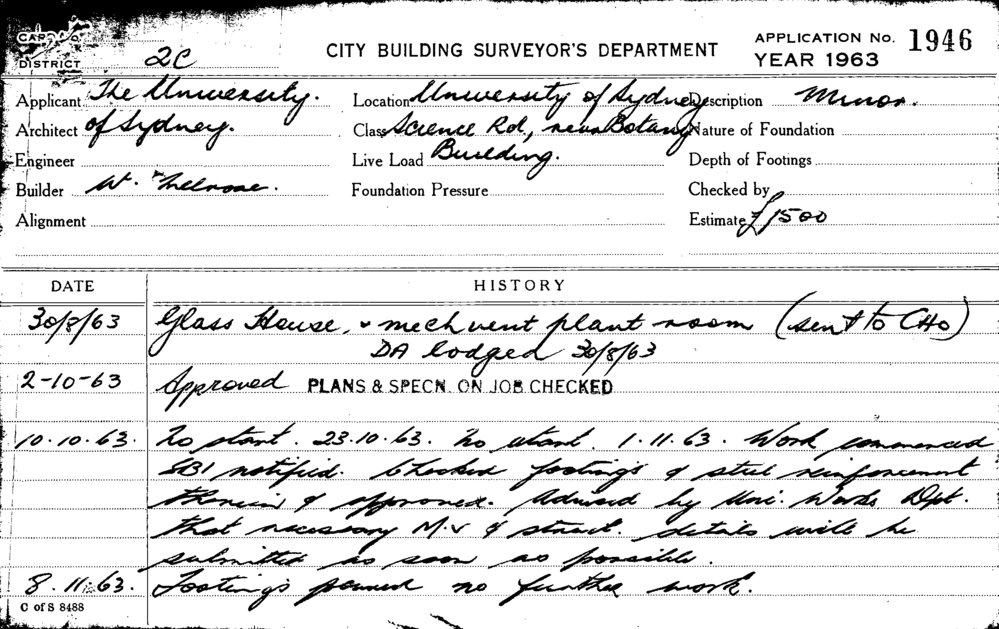 CARD No.
DISTRICT 2C
CITY BUILDING SURVEYOR'S DEPARTMENT
APPLICATION No. 1946
YEAR 1963
Applicant The University. Location University of Sydney Description Minor.
Architect of Sydney. Class Science Rd, near Botany Nature of Foundation
Engineer Live Load Building. Depth of Footings
Builder W. Melrose. Foundation Pressure Checked by
Alignment Estimate £1500
DATE HISTORY
30/8/63 Glass House, & mech vent plant room (sent to CHO)
DA lodged 30/8/63
2-10-63 Approved PLANS & SPECN. ON JOB CHECKED
10.10.63. No start. 23.10.63. No start. 1.11.63. Work commenced
SBI notified. Checked footings & steel reinforcement
therein & approved. Advised by Uni. Works Dept.
that necessary M.V & struct. details will be
submitted as soon as possible.
8.11.63. Footings poured no further work.
C of S 8488